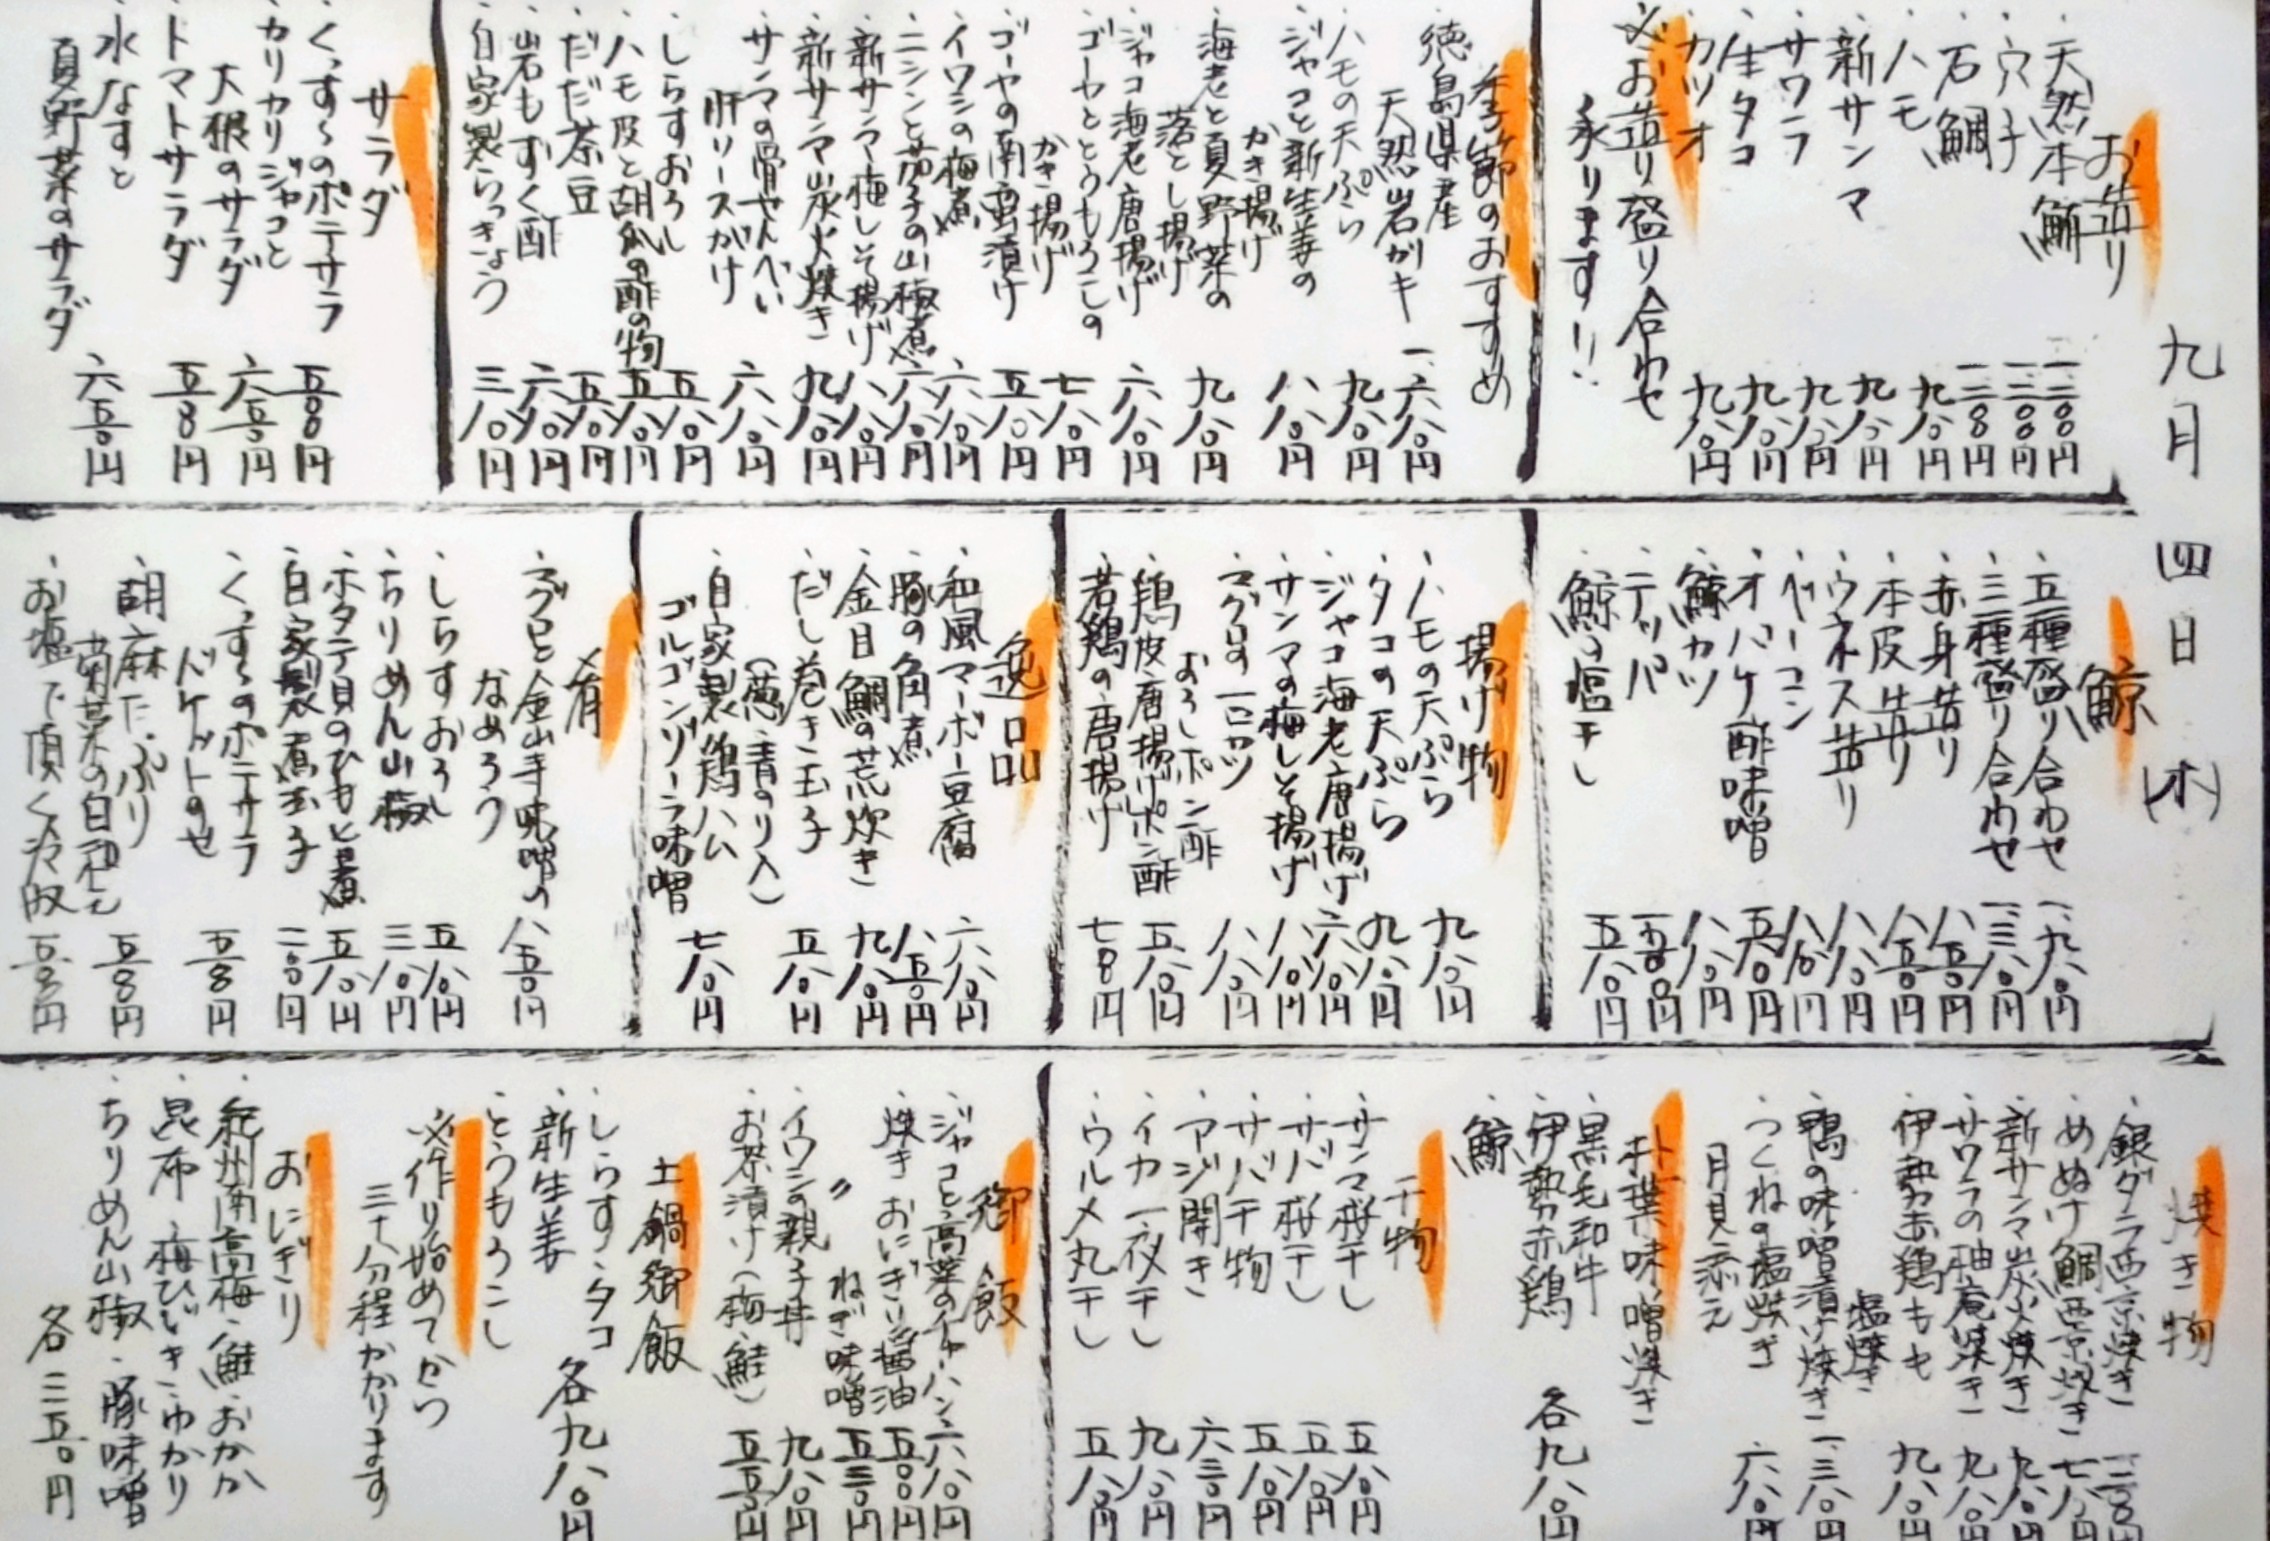 九月四日(木)
お造り
・天然本鮪 一二〇〇円
・穴子 一二〇〇円
・石鯛 一二〇〇円
・ハモ 九八〇円
・新サンマ 九八〇円
・サワラ 九八〇円
・生タコ 九八〇円
・カツオ 九八〇円
※お造り盛り合わせ
承ります!!
季節のおすすめ
・徳島県産
天然岩ガキ 一六八〇円
・ハモの天ぷら 九八〇円
・ジャコと新生姜の
かき揚げ 八八〇円
・海老と夏野菜の
落とし揚げ 九八〇円
・ジャコ海老唐揚げ 六八〇円
・ゴーヤととうもろこしの
かき揚げ 七八〇円
・ゴーヤの南蛮漬け 五八〇円
・イワシの梅煮 六八〇円
・ニシンと茄子の山椒煮 六八〇円
・新サンマ梅しそ揚げ 八八〇円
・新サンマ炭火焼き 九八〇円
・サンマの骨せんべい
肝ソースがけ 六八〇円
・しらすおろし 五八〇円
・ハモ皮と胡瓜の酢の物 五八〇円
・だだ茶豆 五八〇円
・岩もずく酢 六八〇円
・自家製らっきょう 三八〇円
サラダ
・くっすくのポテサラ 五八〇円
・カリカリジャコと
大根のサラダ 六五〇円
・トマトサラダ 五八〇円
・水なすと
夏野菜のサラダ 六五〇円
鯨
・五種盛り合わせ 一九八〇円
・三種盛り合わせ 一三八〇円
・赤身造り 八五〇円
・本皮造り 八五〇円
・ウネス造り 八八〇円
・ベーコン 八八〇円
・オバケ酢味噌 五八〇円
・鯨カツ 八八〇円
・テッパ 五八〇円
・鯨の塩干し 五八〇円
揚げ物
・ハモの天ぷら 九八〇円
・タコの天ぷら 九八〇円
・ジャコ海老唐揚げ 六八〇円
・サンマの梅しそ揚げ 八八〇円
・マグロの一口カツ
おろしポン酢 八八〇円
・鶏皮唐揚げポン酢 五八〇円
・若鶏の唐揚げ 七八〇円
逸品
・和風マーボー豆腐 六八〇円
・豚の角煮 八五〇円
・金目鯛の荒炊き 九八〇円
・だし巻き玉子
(葱・青のり入) 五八〇円
・自家製鶏ハム
ゴルゴンゾーラ味噌 七八〇円
肴
・マグロと金山寺味噌の
なめろう 八五〇円
・しらすおろし 五八〇円
・ちりめん山椒 三八〇円
・ホタテ貝のひもと煮 五八〇円
・自家製煮玉子 二〇〇円
・くっすくのポテサラ
バケットのせ 五八〇円
・胡麻たっぷり
菊菜の白和え 五八〇円
・お塩で頂く冷奴 五八〇円
焼き物
・銀ダラ西京焼き
・めぬけ鯛西京焼き 一一八〇円
・新サンマ炭火焼き 九八〇円
・サワラの柚庵焼き 九八〇円
・伊勢赤鶏もも
塩焼き 九八〇円
・鴨の味噌漬け焼き 一三八〇円
・つくねの塩焼き
月見添え 六八〇円
朴葉味噌焼き
・黒毛和牛
・伊勢赤鶏
・鯨
各九八〇円
干物
・サンマ桜干し 五八〇円
・サバ桜干し 五八〇円
・サバ干物 五八〇円
・アジ開き 六三〇円
・イカ一夜干し 九八〇円
・ウルメ丸干し 五八〇円
御飯
・ジャコと高菜のチャーハン 六八〇円
・焼きおにぎり醤油 五〇〇円
〃 ねぎ味噌 五三〇円
・イワシの親子丼 九八〇円
・お茶漬け(梅・鮭) 五五〇円
土鍋御飯
・しらす・タコ
・新生姜
・とうもろこし
各九八〇円
※作り始めてから
三十分程かかります
おにぎり
・紀州南高梅・鮭・おかか
・昆布・梅ひじき・ゆかり
・ちりめん山椒・豚味噌
各二五〇円